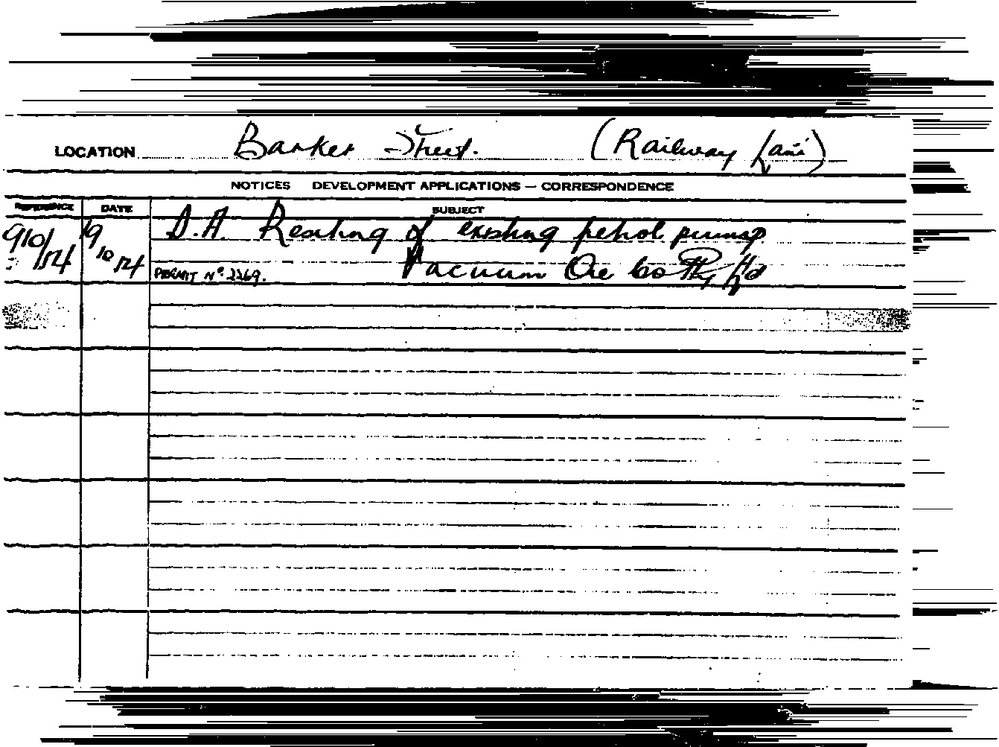 LOCATION Barker Street. (Railway Lane)
NOTICES DEVELOPMENT APPLICATIONS — CORRESPONDENCE
REFERENCE DATE SUBJECT
910/54 19/10/54 D.A. Resiting of existing petrol pump
PERMIT Nº 2269. Vacuum Oil Co Pty Ltd